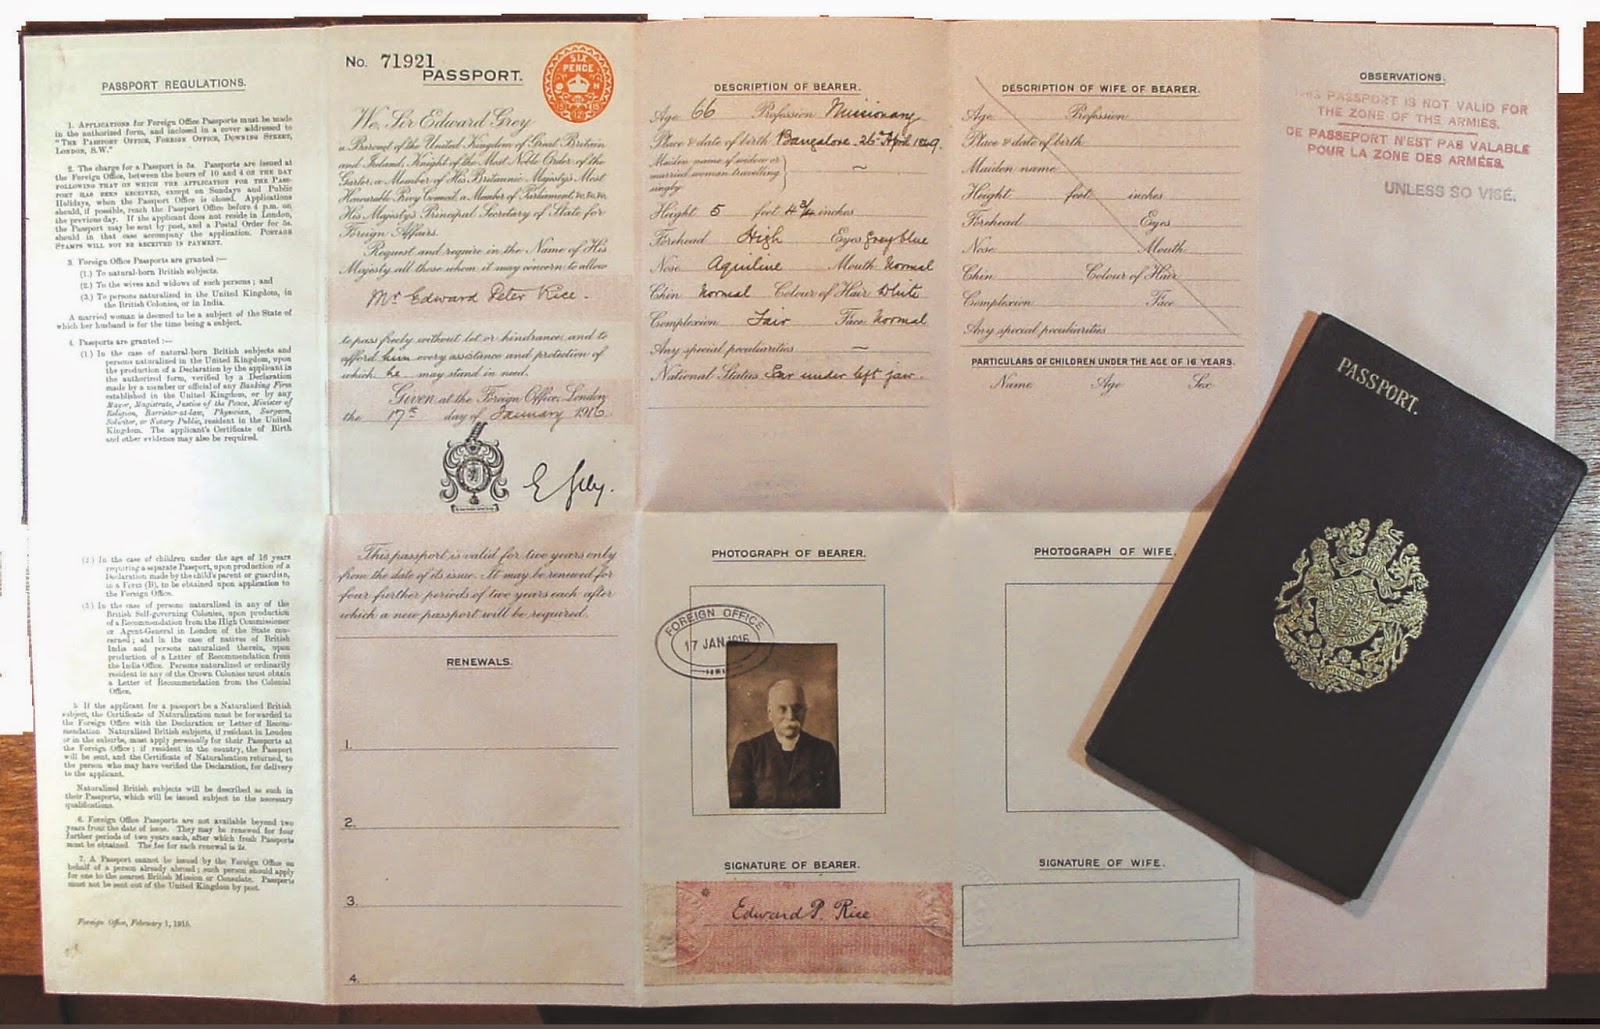 PASSPORT REGULATIONS.
1. APPLICATIONS for Foreign Office Passports must be made
in the authorized form, and inclosed in a cover addressed to
"THE PASSPORT OFFICE, FOREIGN OFFICE, DOWNING STREET,
LONDON, S.W."
2. The charge for a Passport is 5s. Passports are issued at
the Foreign Office, between the hours of 10 and 4 ON THE DAY
FOLLOWING THAT ON WHICH THE APPLICATION FOR THE PASS-
PORT HAS BEEN RECEIVED, except on Sundays and Public
Holidays, when the Passport Office is closed. Applications
should, if possible, reach the Passport Office before 4 p.m. on
the previous day. If the applicant does not reside in London,
the Passport may be sent by post, and a Postal Order for 5s.
should in that case accompany the application. POSTAGE
STAMPS WILL NOT BE RECEIVED IN PAYMENT.
3. Foreign Office Passports are granted :—
(1.) To natural-born British subjects.
(2.) To the wives and widows of such persons ; and
(3.) To persons naturalized in the United Kingdom, in
the British Colonies, or in India.
A married woman is deemed to be a subject of the State of
which her husband is for the time being a subject.
4. Passports are granted :—
(1.) In the case of natural-born British subjects and
persons naturalized in the United Kingdom, upon
the production of a Declaration by the applicant in
the authorized form, verified by a Declaration
made by a member or official of any Banking Firm
established in the United Kingdom, or by any
Mayor, Magistrate, Justice of the Peace, Minister of
Religion, Barrister-at-law, Physician, Surgeon,
Solicitor, or Notary Public, resident in the United
Kingdom. The applicant's Certificate of Birth
and other evidence may also be required.
(2.) In the case of children under the age of 16 years
requiring a separate Passport, upon production of a
Declaration made by the child's parent or guardian,
in a Form (B), to be obtained upon application to
the Foreign Office.
(3.) In the case of persons naturalized in any of the
British Self-governing Colonies, upon production
of a Recommendation from the High Commissioner
or Agent-General in London of the State con-
cerned ; and in the case of natives of British
India and persons naturalized therein, upon
production of a Letter of Recommendation from
the India Office. Persons naturalized or ordinarily
resident in any of the Crown Colonies must obtain
a Letter of Recommendation from the Colonial
Office.
5. If the applicant for a passport be a Naturalized British
subject, the Certificate of Naturalization must be forwarded to
the Foreign Office with the Declaration or Letter of Recom-
mendation Naturalized British subjects, if resident in London
or in the suburbs, must apply personally for their Passports at
the Foreign Office ; if resident in the country, the Passport
will be sent, and the Certificate of Naturalization returned, to
the person who may have verified the Declaration, for delivery
to the applicant.
Naturalized British subjects will be described as such in
their Passports, which will be issued subject to the necessary
qualifications.
6. Foreign Office Passports are not available beyond two
years from the date of issue. They may be renewed for four
further periods of two years each, after which fresh Passports
must be obtained. The fee for each renewal is 2s.
7. A Passport cannot be issued by the Foreign Office on
behalf of a person already abroad ; such person should apply
for one to the nearest British Mission or Consulate. Passports
must not be sent out of the United Kingdom by post.
Foreign Office, February 1, 1915.
No. 71921
PASSPORT.
SIX
PENCE
We, Sir Edward Grey
a Baronet of the United Kingdom of Great Britain
and Ireland, Knight of the Most Noble Order of the
Garter, a Member of His Britannic Majesty's Most
Honourable Privy Council, a Member of Parliament, &c, &c, &c,
His Majesty's Principal Secretary of State for
Foreign Affairs.
Request and require in the Name of His
Majesty all those whom it may concern to allow
Mr Edward Peter Rice.
to pass freely without let or hindrance, and to
afford him every assistance and protection of
which he may stand in need.
Given at the Foreign Office, London
the 17th day of January 1916
E Grey.
This passport is valid for two years only
from the date of its issue. It may be renewed for
four further periods of two years each after
which a new passport will be required.
RENEWALS.
1.
2.
3.
4.
DESCRIPTION OF BEARER.
Age 66 Profession Missionary
Place & date of birth Bangalore. 26th April 1849.
Maiden name of widow or
married woman travelling
singly
Height 5 feet 4 3/4 inches
Forehead High Eyes Grey blue
Nose Aquiline Mouth Normal
Chin Normal Colour of Hair White
Complexion Fair Face Normal
Any special peculiarities
National Status Scar under left jaw.
PHOTOGRAPH OF BEARER.
FOREIGN OFFICE
17 JAN 1916
SIGNATURE OF BEARER.
Edward P. Rice
DESCRIPTION OF WIFE OF BEARER.
Age Profession
Place & date of birth
Maiden name
Height feet inches
Forehead Eyes
Nose Mouth
Chin Colour of Hair
Complexion Face
Any special peculiarities
PARTICULARS OF CHILDREN UNDER THE AGE OF 16 YEARS.
Name Age Sex
PHOTOGRAPH OF WIFE.
SIGNATURE OF WIFE.
OBSERVATIONS.
THIS PASSPORT IS NOT VALID FOR
THE ZONE OF THE ARMIES.
CE PASSEPORT N'EST PAS VALABLE
POUR LA ZONE DES ARMÉES.
UNLESS SO VISÉ.
PASSPORT.